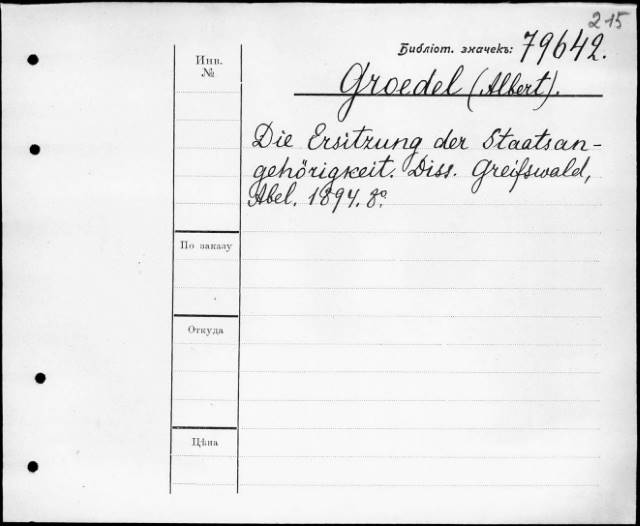 215
Библіот. значекъ: 79642.
Инв.
№
Groedel (Albert).
Die Ersitzung der Staatsan-
gehörigkeit. Diss. Greifswald,
Abel. 1894. 8º.
По заказу
Откуда
Цѣна